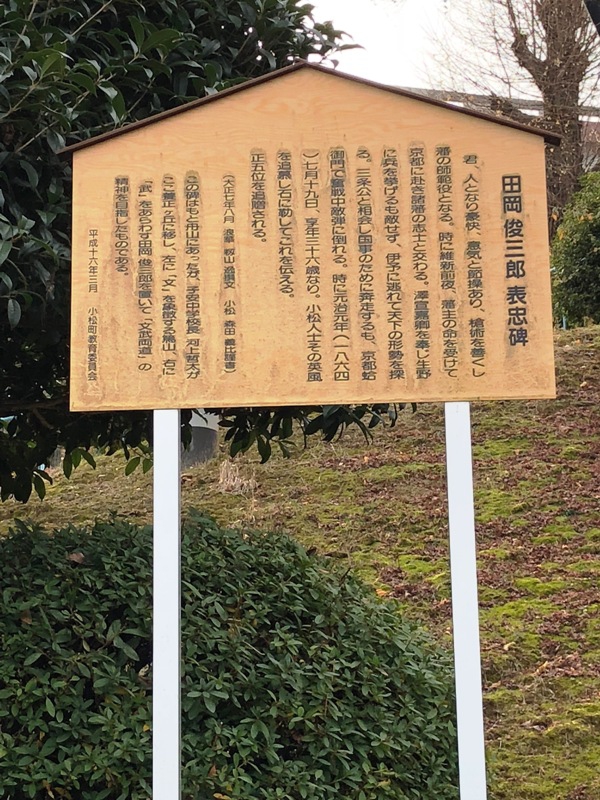 田岡 俊三郎 表忠碑
君、人となり豪快、意気と節操あり、槍術を善くし
藩の師範役となる。時に維新前夜、藩主の命を受けて
京都に赴き諸藩の志士と交わる。澤宣嘉卿を奉じ生野
に兵を挙げるも敵せず、伊予に逃れて天下の形勢を探
る。三条公と相会し国事のために奔走するも、京都蛤
御門で奮戦中敵弾に倒れる。時に元治元年(一八六四
)七月十九日、享年三十六歳なり。小松人士その英風
を追慕し石に勒してこれを伝える。
正五位を追贈される。
(大正七年八月 浪華 教山 撰文 小松 森田 義比謹書)
この碑はもと舟山にあったが、子安中学校長 河上哲太が
ここ養正ヶ丘に移し、左に「文」を象徴する嵩山、右に
「武」をあらわす田岡 俊三郎を置いて「文武両道」の
精神を目指したものである。
平成十六年三月 小松町教育委員会